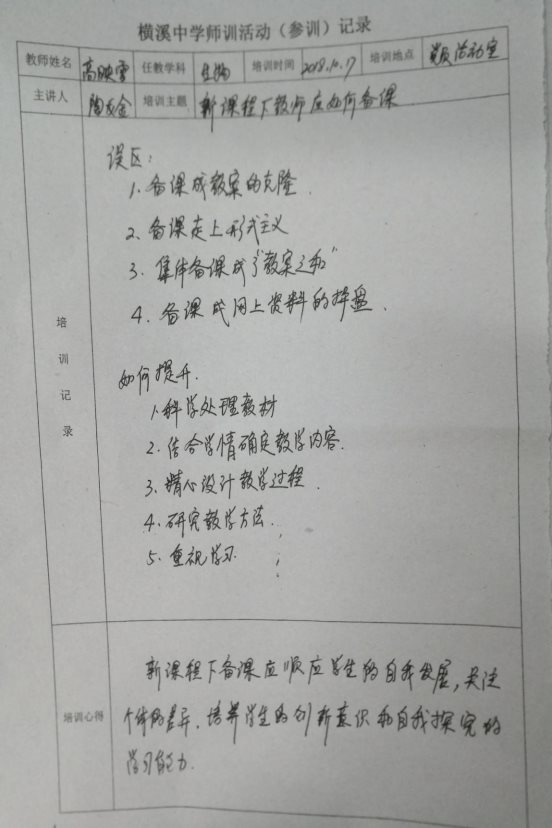 横溪中学师训活动（参训）记录
教师姓名 高映雪 任教学科 生物 培训时间 2018.10.17 培训地点 党员活动室
主讲人 陶友金 培训主题 新课程下教师应如何备课
培训记录
误区：
1. 备课成教案的克隆
2、备课走上形式主义
3、集体备课成了“教案之和”
4、备课成网上资料的拼盘、
如何提升.
1.科学处理教材
2.结合学情确定教学内容.
3、精心设计教学过程.
4.研究教学方法.
5.重视学习.
培训心得
新课程下备课应顺应学生的自我发展，关注
个体的差异.培养学生的创新意识和自我探究的
学习能力.